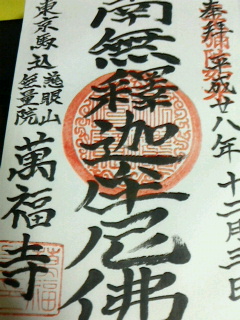 奉拜
平成廿八年十二月三日
南無釋迦牟尼佛
東京駒込慈眼山
無量院
萬福寺